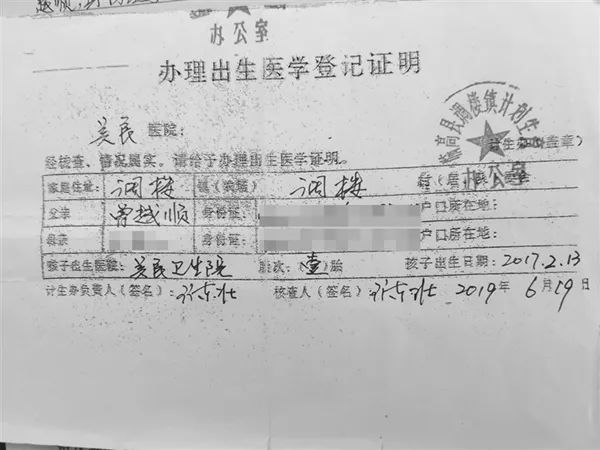 办公室
办理出生医学登记证明
美民 医院：
经核查、情况属实。请给予办理出生医学证明。
计生办（盖章）
临高县调楼镇计划生育
办公室
家庭住址： 调楼 镇（农场） 调楼
父亲 曾越顺 身份证： 户口所在地：
母亲 身份证： 户口所在地：
孩子出生医院： 美民卫生院 胎次：（壹）胎 孩子出生日期：2017.2.13
计生办负责人（签名）： 核查人（签名） 2019年6月19日